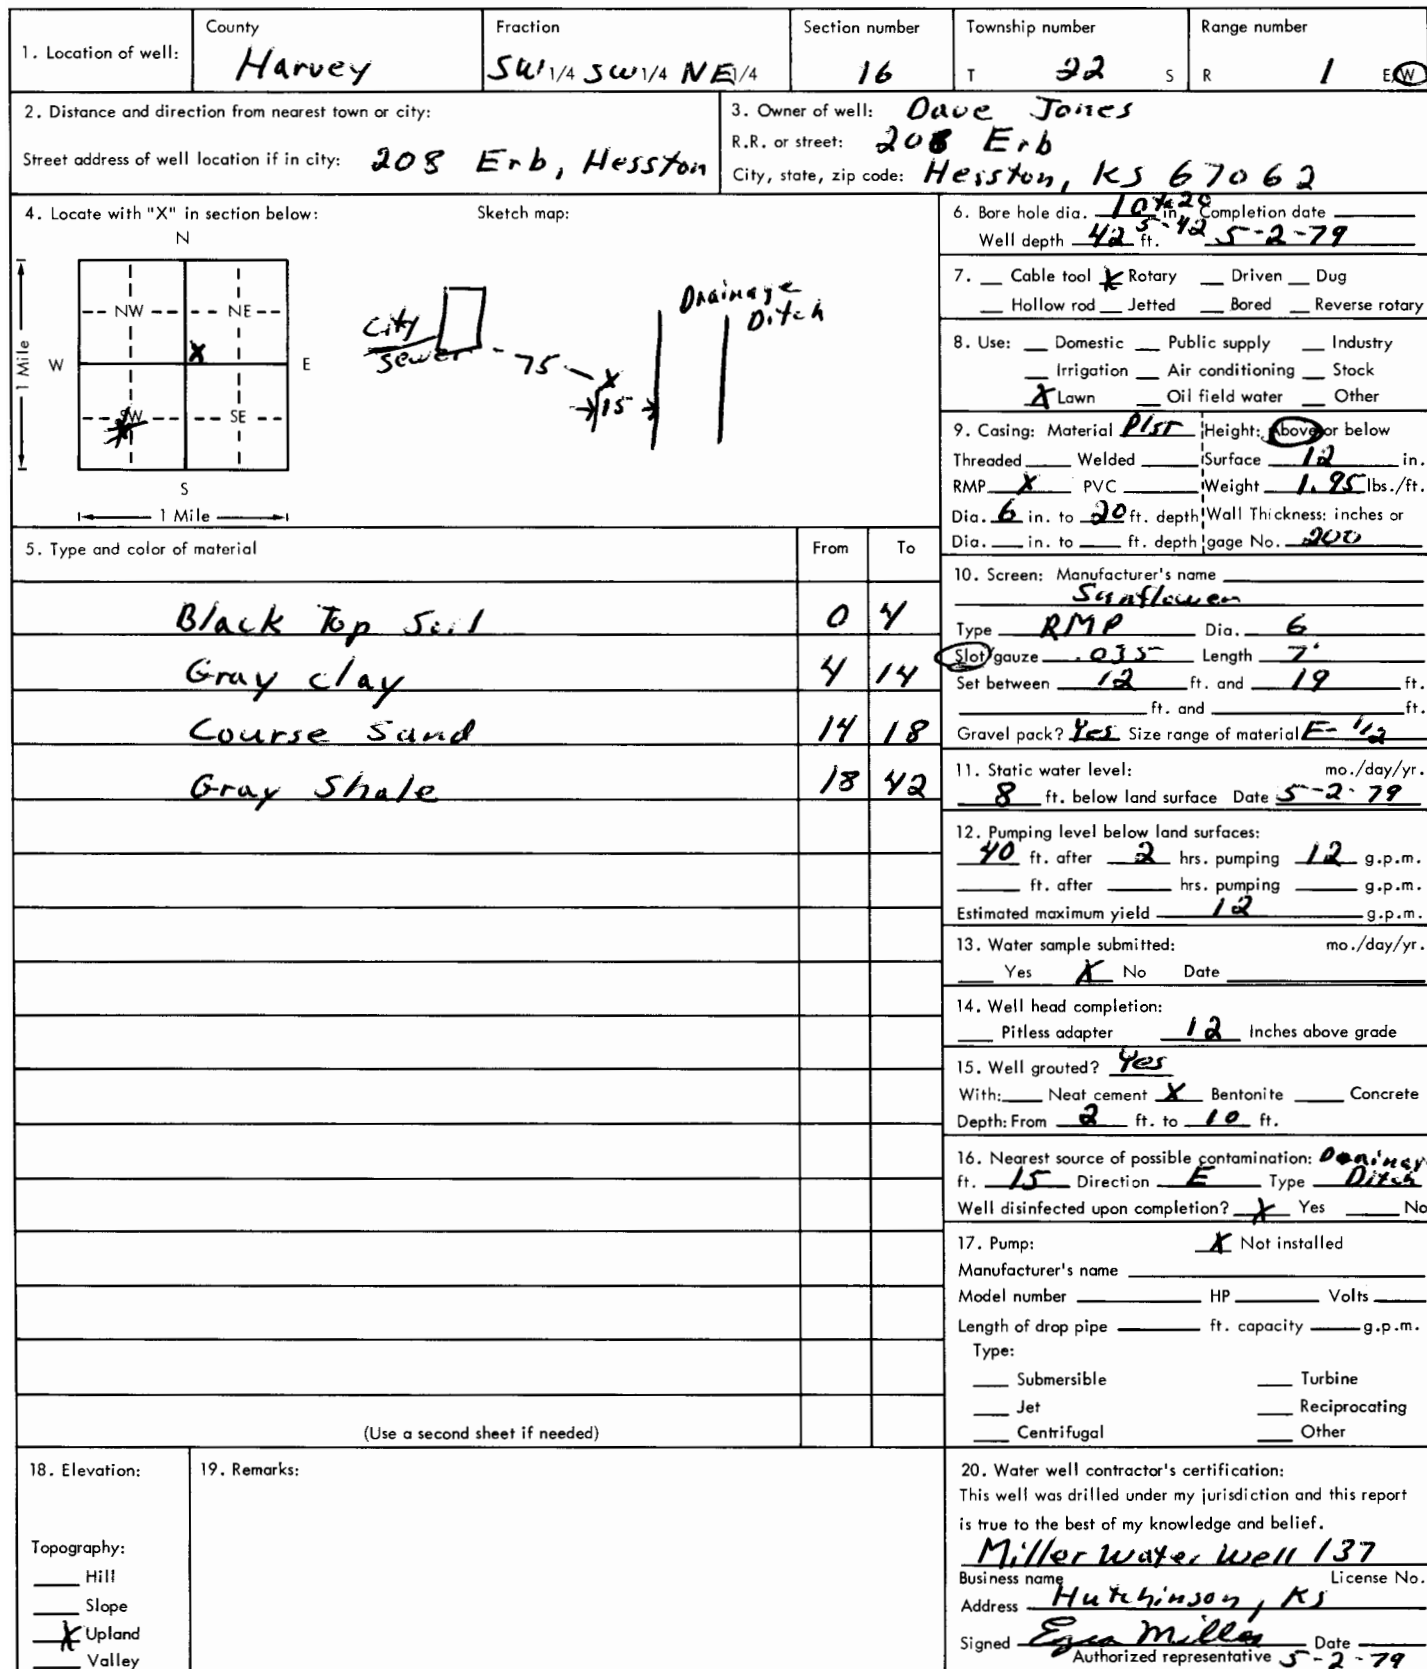 1. Location of well:
County
Harvey
Fraction
SW 1/4 SW 1/4 NE 1/4
Section number
16
Township number
T 22 S
Range number
R 1 E/W
2. Distance and direction from nearest town or city:
Street address of well location if in city: 208 Erb, Hesston
3. Owner of well: Dave Jones
R.R. or street: 208 Erb
City, state, zip code: Hesston, KS 67062
4. Locate with "X" in section below:
Sketch map:
N
NW NE
1 Mile W X E
SW SE
S
1 Mile
City
sewer
75
X
15
Drainage
Ditch
5. Type and color of material From To
Black Top Soil 0 4
Gray clay 4 14
Course Sand 14 18
Gray Shale 18 42
(Use a second sheet if needed)
6. Bore hole dia. 10 to 20 in. Completion date
5-42
Well depth 42 ft. 5-2-79
7. Cable tool X Rotary Driven Dug
Hollow rod Jetted Bored Reverse rotary
8. Use: Domestic Public supply Industry
Irrigation Air conditioning Stock
X Lawn Oil field water Other
9. Casing: Material Plst Height: Above or below
Threaded Welded Surface 12 in.
RMP X PVC Weight 1.95 lbs./ft.
Dia. 6 in. to 20 ft. depth Wall Thickness: inches or
Dia. in. to ft. depth gage No. 200
10. Screen: Manufacturer's name
Sunflower
Type RMP Dia. 6
Slot/gauze .035 Length 7'
Set between 12 ft. and 19 ft.
ft. and ft.
Gravel pack? Yes Size range of material E- 1/2
11. Static water level: mo./day/yr.
8 ft. below land surface Date 5-2-79
12. Pumping level below land surfaces:
40 ft. after 2 hrs. pumping 12 g.p.m.
ft. after hrs. pumping g.p.m.
Estimated maximum yield 12 g.p.m.
13. Water sample submitted: mo./day/yr.
Yes X No Date
14. Well head completion:
Pitless adapter 12 Inches above grade
15. Well grouted? Yes
With: Neat cement X Bentonite Concrete
Depth: From 2 ft. to 10 ft.
16. Nearest source of possible contamination: Drainag
ft. 15 Direction E Type Ditch
Well disinfected upon completion? X Yes No
17. Pump: X Not installed
Manufacturer's name
Model number HP Volts
Length of drop pipe ft. capacity g.p.m.
Type:
Submersible Turbine
Jet Reciprocating
Centrifugal Other
18. Elevation:
Topography:
Hill
Slope
X Upland
Valley
19. Remarks:
20. Water well contractor's certification:
This well was drilled under my jurisdiction and this report
is true to the best of my knowledge and belief.
Miller Water Well 137
Business name License No.
Address Hutchinson, KS
Signed Ezra Miller Date
Authorized representative 5-2-79